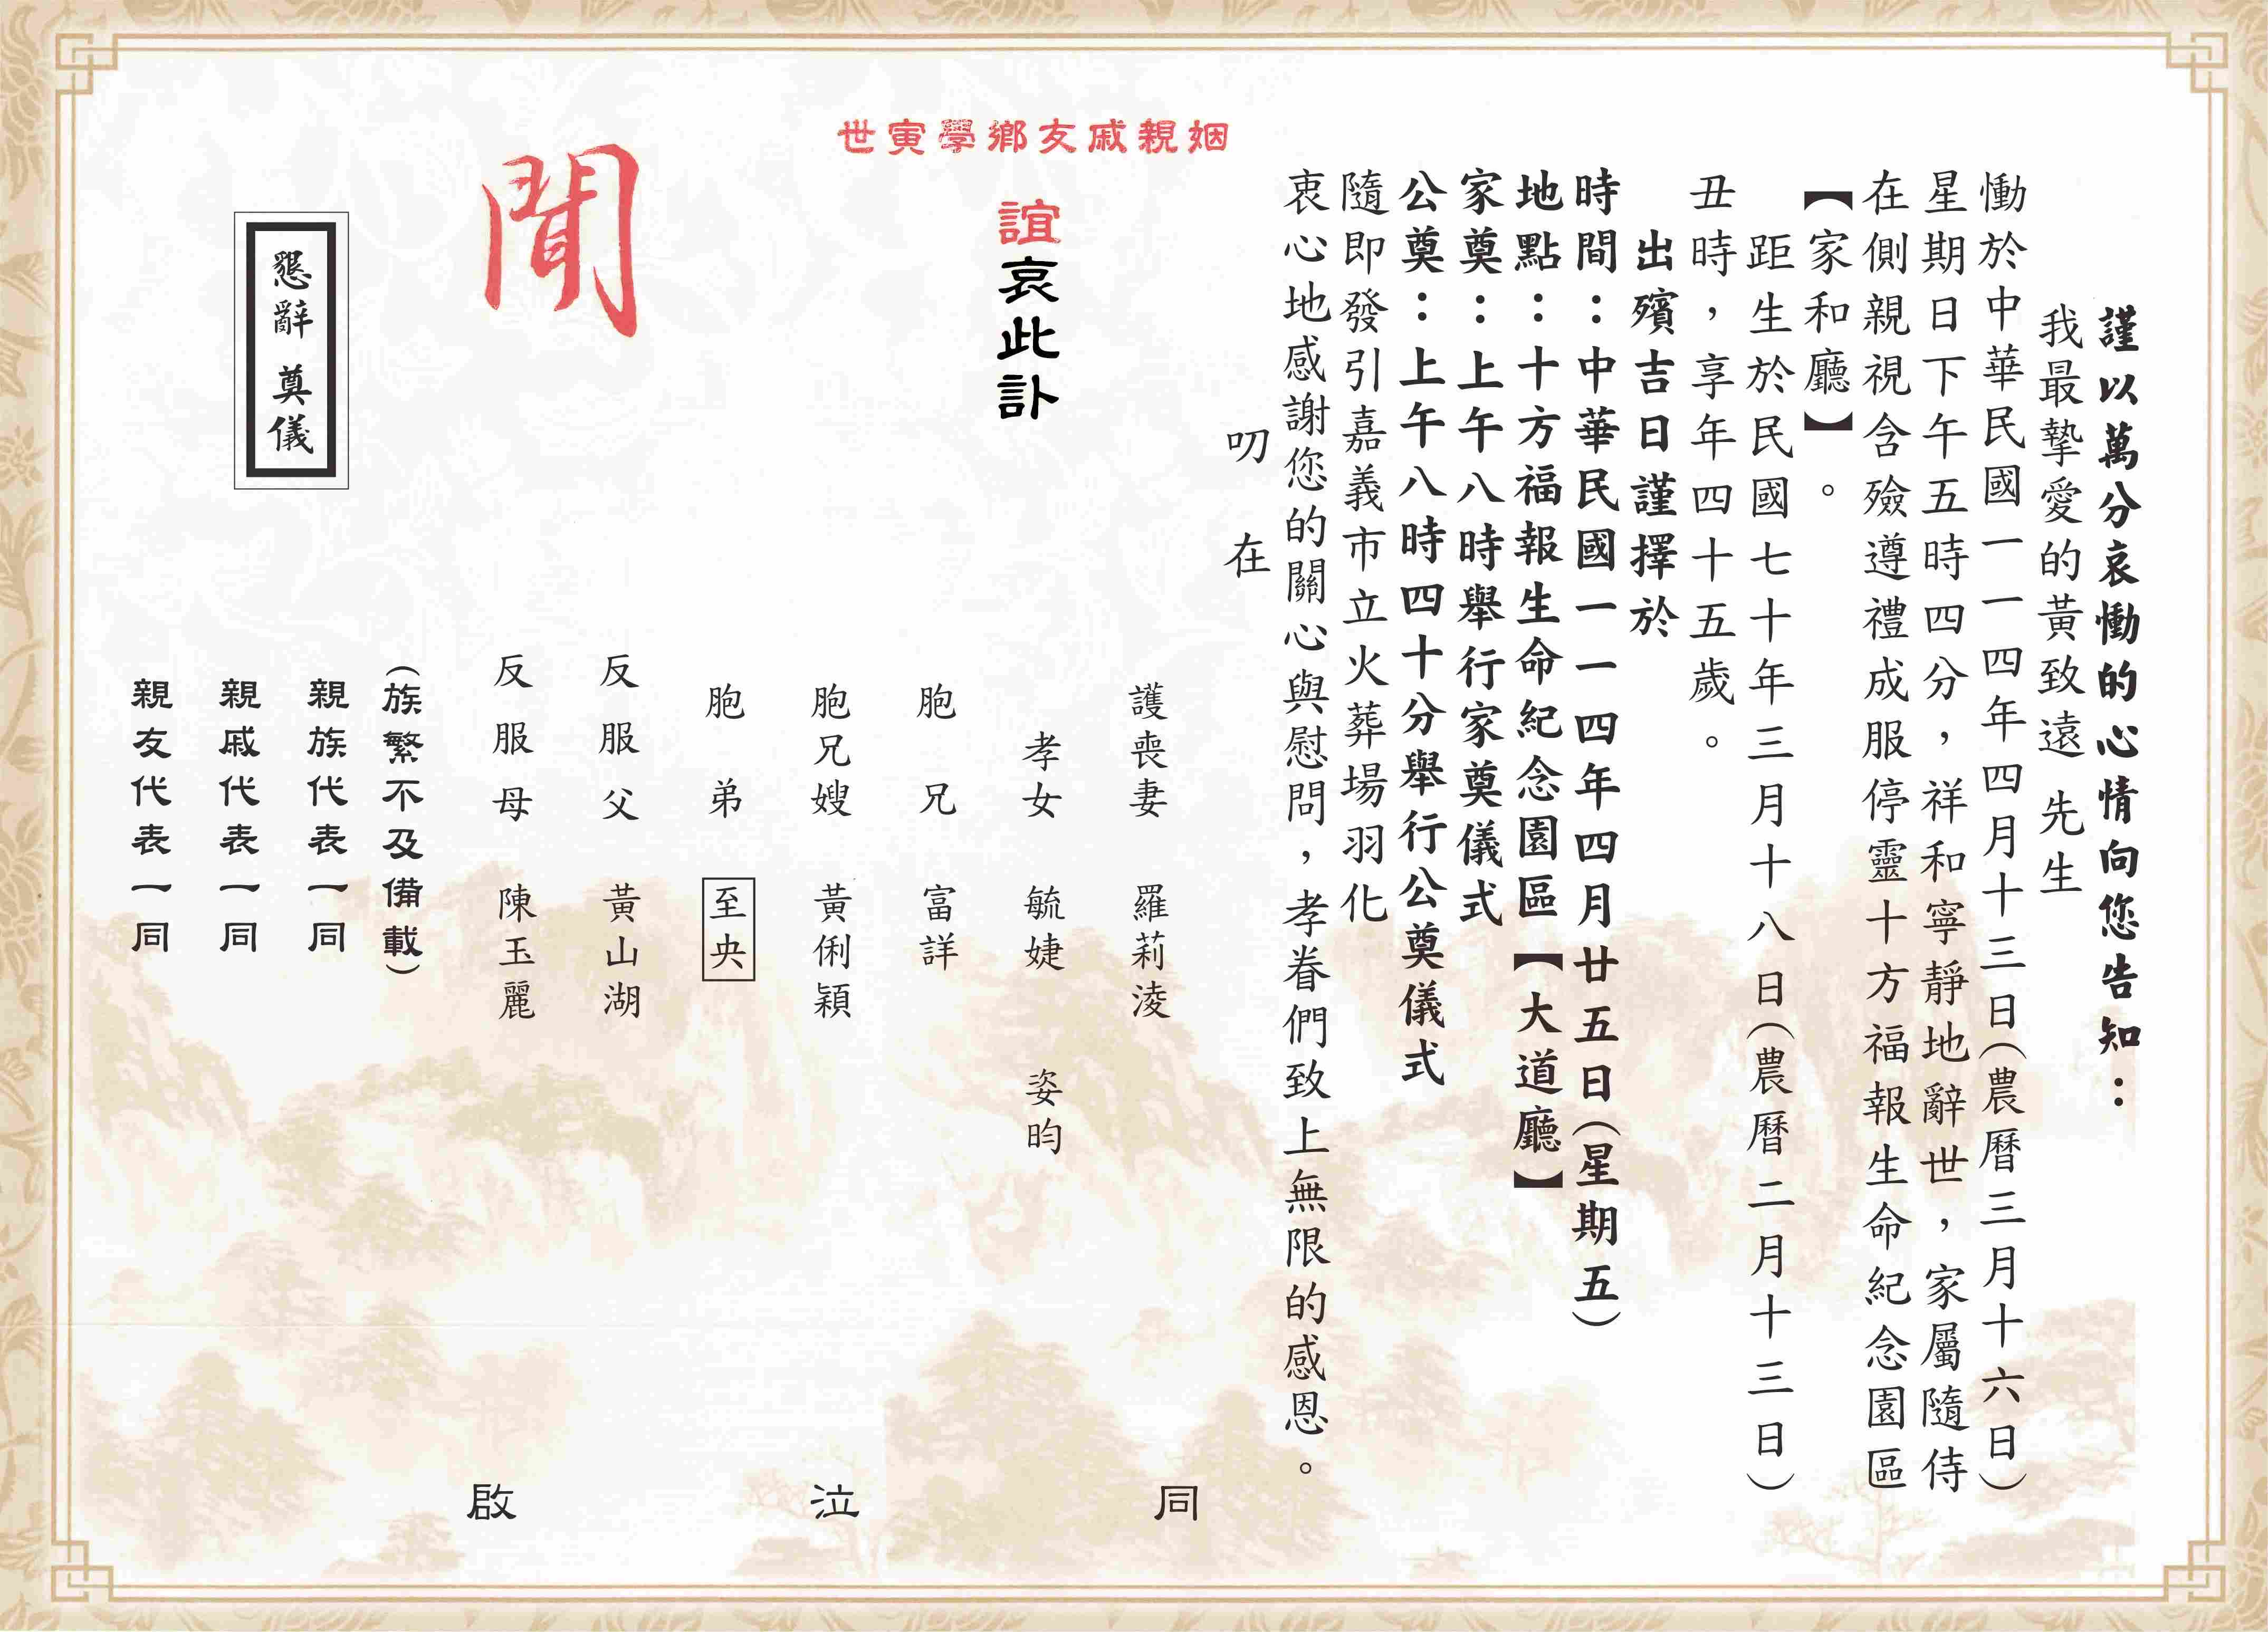 謹以萬分哀慟的心情向您告知：
我最摯愛的黃致遠 先生
慟於中華民國一一四年四月十三日(農曆三月十六日)
星期日下午五時四分，祥和寧靜地辭世，家屬隨侍
在側親視含殮遵禮成服停靈十方福報生命紀念園區
【家和廳】。
距生於民國七十年三月十八日(農曆二月十三日)
丑時，享年四十五歲。
出殯吉日謹擇於
時間：中華民國一一四年四月廿五日(星期五)
地點：十方福報生命紀念園區【大道廳】
家奠：上午八時舉行家奠儀式
公奠：上午八時四十分舉行公奠儀式
隨即發引嘉義市立火葬場羽化
衷心地感謝您的關心與慰問，孝眷們致上無限的感恩。
叨在
姻親戚友鄉學寅世
誼哀此訃
聞
懇辭 奠儀
護喪妻 羅莉淩
孝女 毓婕 姿昀
胞兄 富詳
胞兄嫂 黃俐穎
胞弟 至央
反服父 黃山湖
反服母 陳玉麗
(族繁不及備載)
親族代表一同
親戚代表一同
親友代表一同
同泣啟